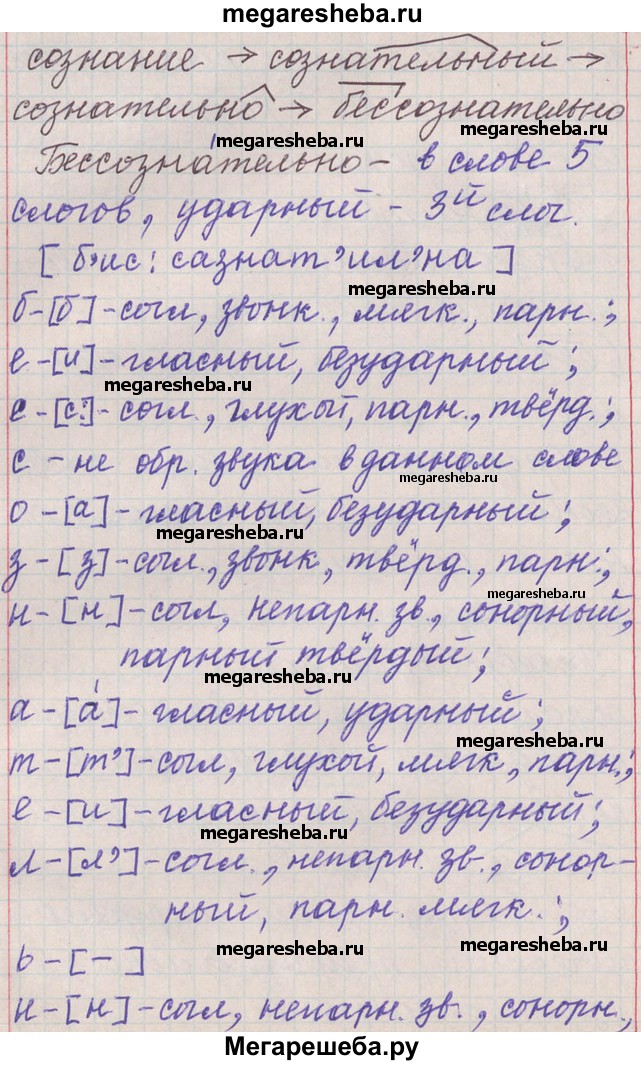 megaresheba.ru
сознание → сознательный →
сознательно → бессознательно
megaresheba.ru
megaresheba.ru
Бессознательно – в слове 5
слогов, ударный – 3й слог.
[б,ис: сазнат'ил'на]
megaresheba.ru
б-[б]-согл, звонк., мягк., парн.;
megaresheba.ru
е-[и]-гласный, безударный;
megaresheba.ru
с-[с:]-согл., глухой, парн., твёрд.;
с – не обр. звука в данном слове
megaresheba.ru
о-[а]-гласный, безударный;
megaresheba.ru
з-[з]-согл., звонк, твёрд., парн.;
megaresheba.ru
н-[н]-согл, непарн. зв., сонорный,
парный твёрдый;
megaresheba.ru
а-[а́]-гласный, ударный;
megaresheba.ru
т-[т']-согл, глухой, мягк, парн.;
е-[и]-гласный, безударный;
megaresheba.ru
л-[л']-согл., непарн. зв., сонор-
ный, парн. мягк.;
megaresheba.ru
megaresheba.ru
ь-[–]
н-[н]-согл, непарн. зв., сонорн.,
Мегарешеба.ру